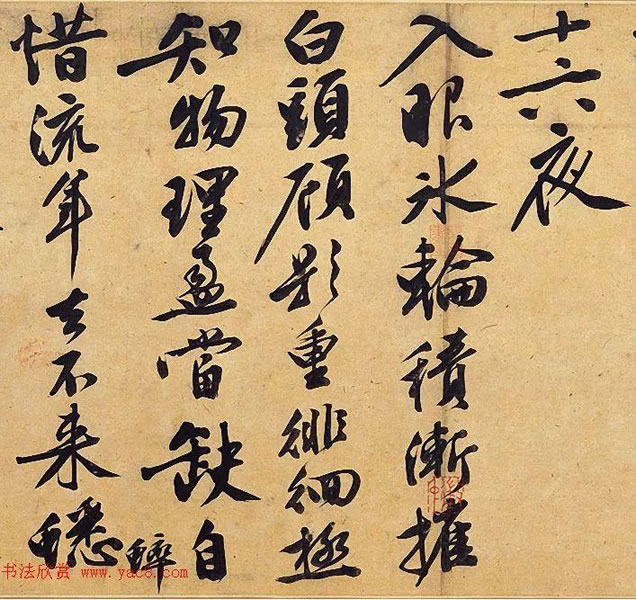 十六夜
入眼氷輪積漸摧
白頭顧影重徘徊極
知物理盈當缺自
惜流年去不来蟋
蟀
书法欣赏 www.yac8.com